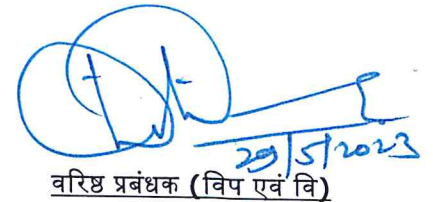 29/5/2023
वरिष्ठ प्रबंधक (विप एवं वि)